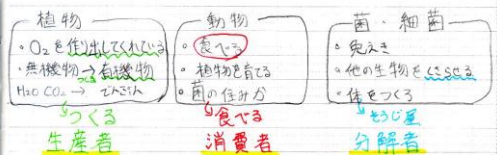 植物
・O2を作り出してくれている
・無機物→有機物
H2O CO2 → でんぷん
つくる
生産者
動物
・食べる
・植物を育てる
・菌の住みか
食べる
消費者
菌・細菌
・免えき
・他の生物をくさらせる
・体をつくる
そうじ屋
分解者